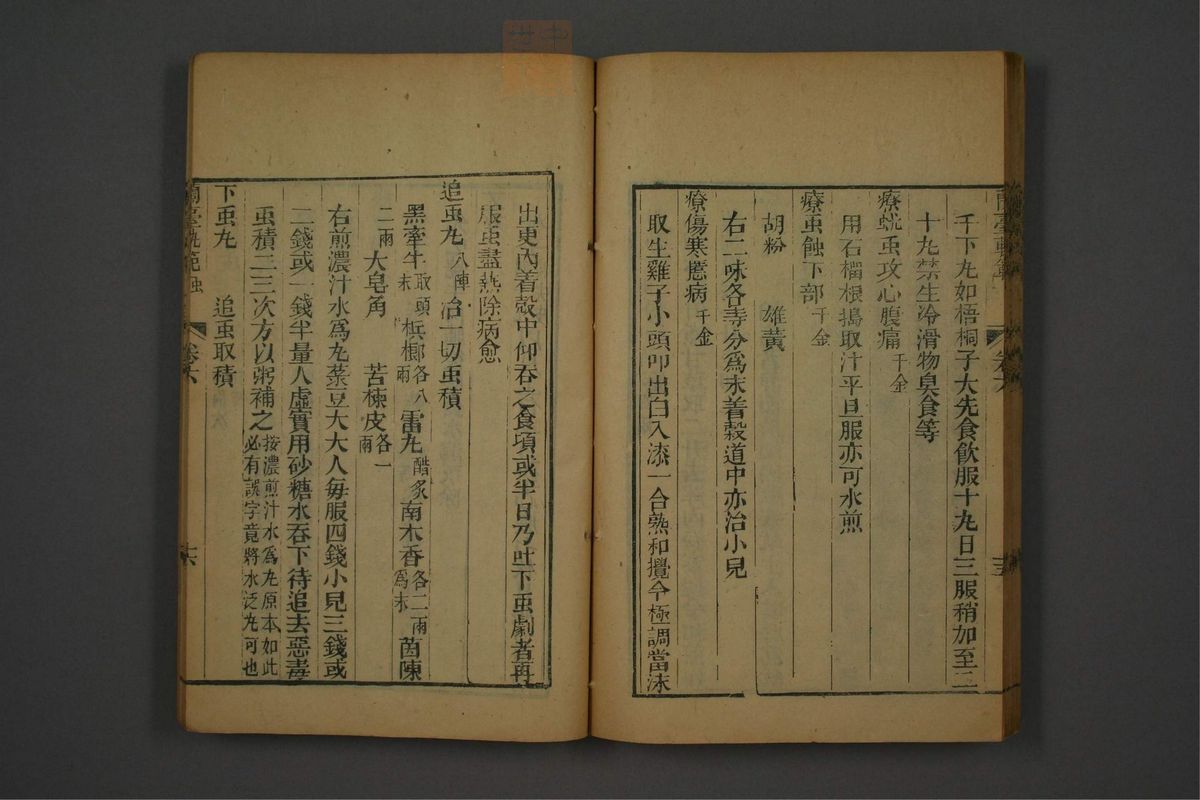 千下丸如梧桐子大先食飲服十丸日三服稍加至二
十丸禁生冷滑物臭食等
療蚘虫攻心腹痛千金
用石榴根搗取汁平旦服亦可水煎
療虫蝕下部千金
胡粉 雄黃
右二味各等分爲末着穀道中亦治小兒
療傷寒䘌病千金
取生雞子小頭叩出白入漆一合熟和攪令極調當沫
出更內着殻中仰吞之食頃或半日乃吐下虫劇者再
服虫盡熱除病愈
追虫丸八陣 治一切虫積
黑牽牛取頭末 檳榔各八兩 雷丸醋炙 南木香各二兩爲末 茵陳
二兩 大皂角 苦楝皮各一兩
右煎濃汁水爲丸菉豆大大人每服四錢小兒三錢或
二錢或一錢半量人虛實用砂糖水吞下待追去惡毒
虫積二三次方以粥補之按濃煎汁水爲丸原本如此必有誤字竟將水泛丸可也
下虫丸 追虫取積
蘭臺軌範 虫 卷六 十六